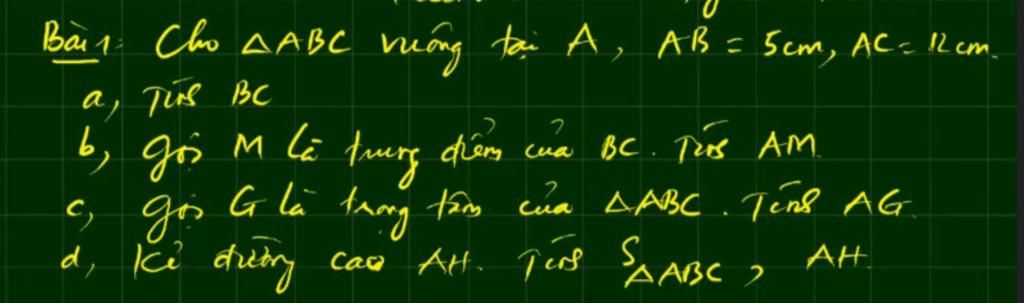 Bài 1: Cho △ABC vuông tại A, AB = 5cm, AC = 12cm.
a, Tính BC
b, gọi M là trung điểm của BC. Tính AM
c, gọi G là trọng tâm của △ABC. Tính AG
d, Kẻ đường cao AH. Tính S△ABC, AH.